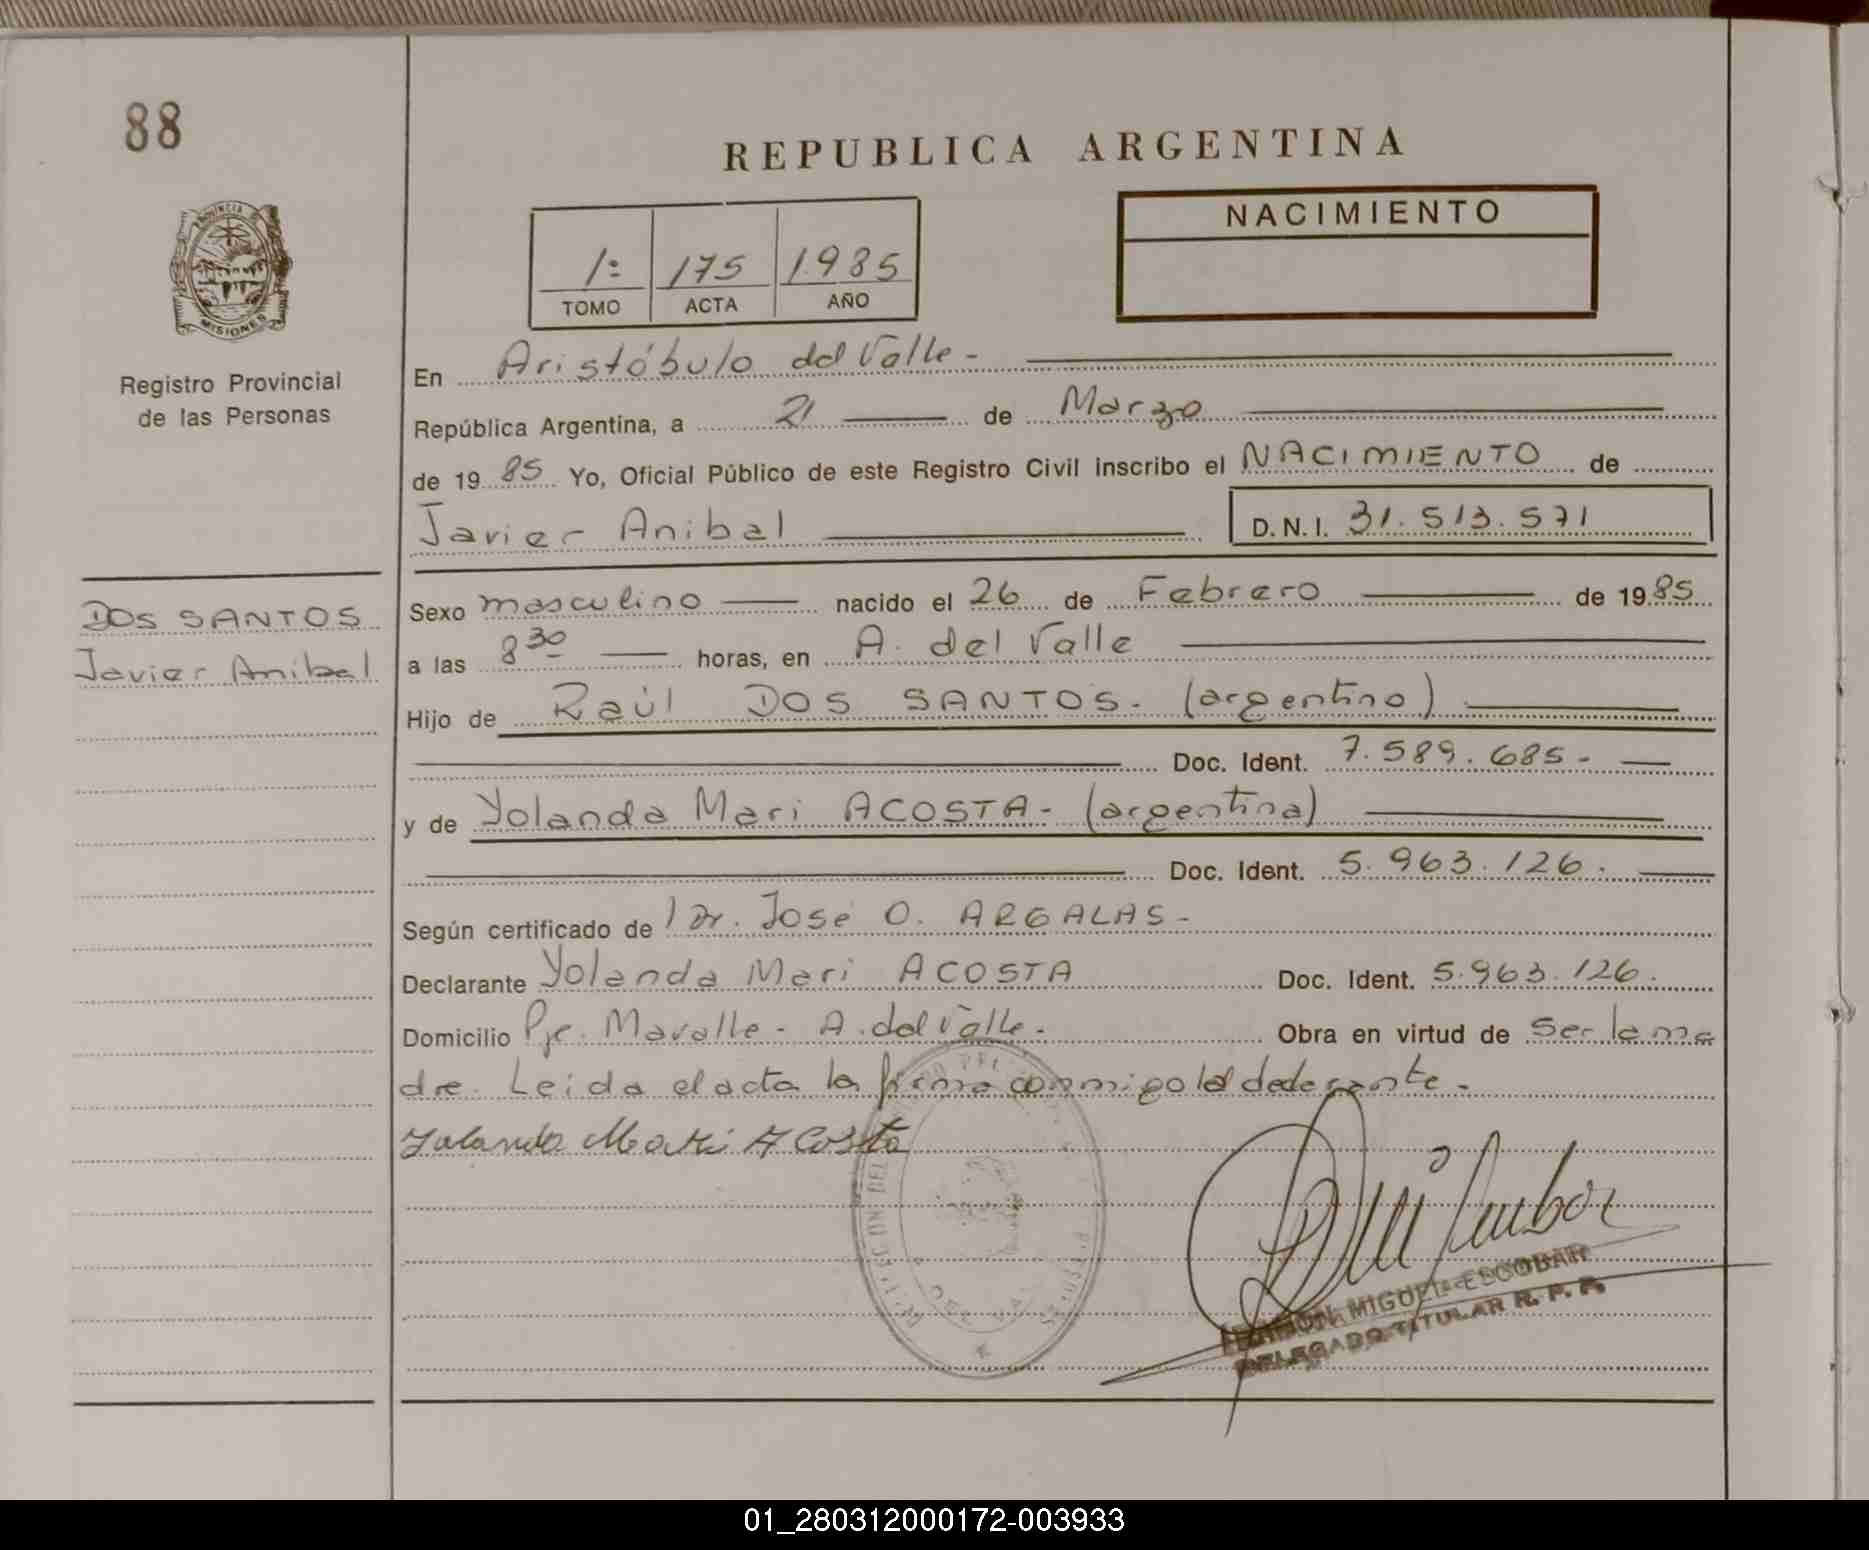 88
PROVINCIA DE
MISIONES
Registro Provincial
de las Personas
DOS SANTOS
Javier Anibal
REPUBLICA ARGENTINA
1: 175 1985
TOMO ACTA AÑO
NACIMIENTO
En Aristóbulo del Valle -
República Argentina, a 21 de Marzo
de 19 85 Yo, Oficial Público de este Registro Civil inscribo el NACIMIENTO de
Javier Anibal D.N.I. 31.513.571
Sexo masculino nacido el 26 de Febrero de 19 85
a las 8 30 horas, en A. del Valle
Hijo de Raúl DOS SANTOS - (argentino)
Doc. Ident. 7.589.685 -
y de Yolanda Mari ACOSTA - (argentina)
Doc. Ident. 5.963.126.
Según certificado de Dr. José O. ARGALAS -
Declarante Yolanda Mari ACOSTA Doc. Ident. 5.963.126.
Domicilio Pje. Mavalle - A. del Valle - Obra en virtud de Ser la ma
dre. Leida el acta la firma conmigo la
Yolanda Mari Acosta
MIGUEL ESCOBAR
DELEGADO TITULAR R. P. P.
01_280312000172-003933